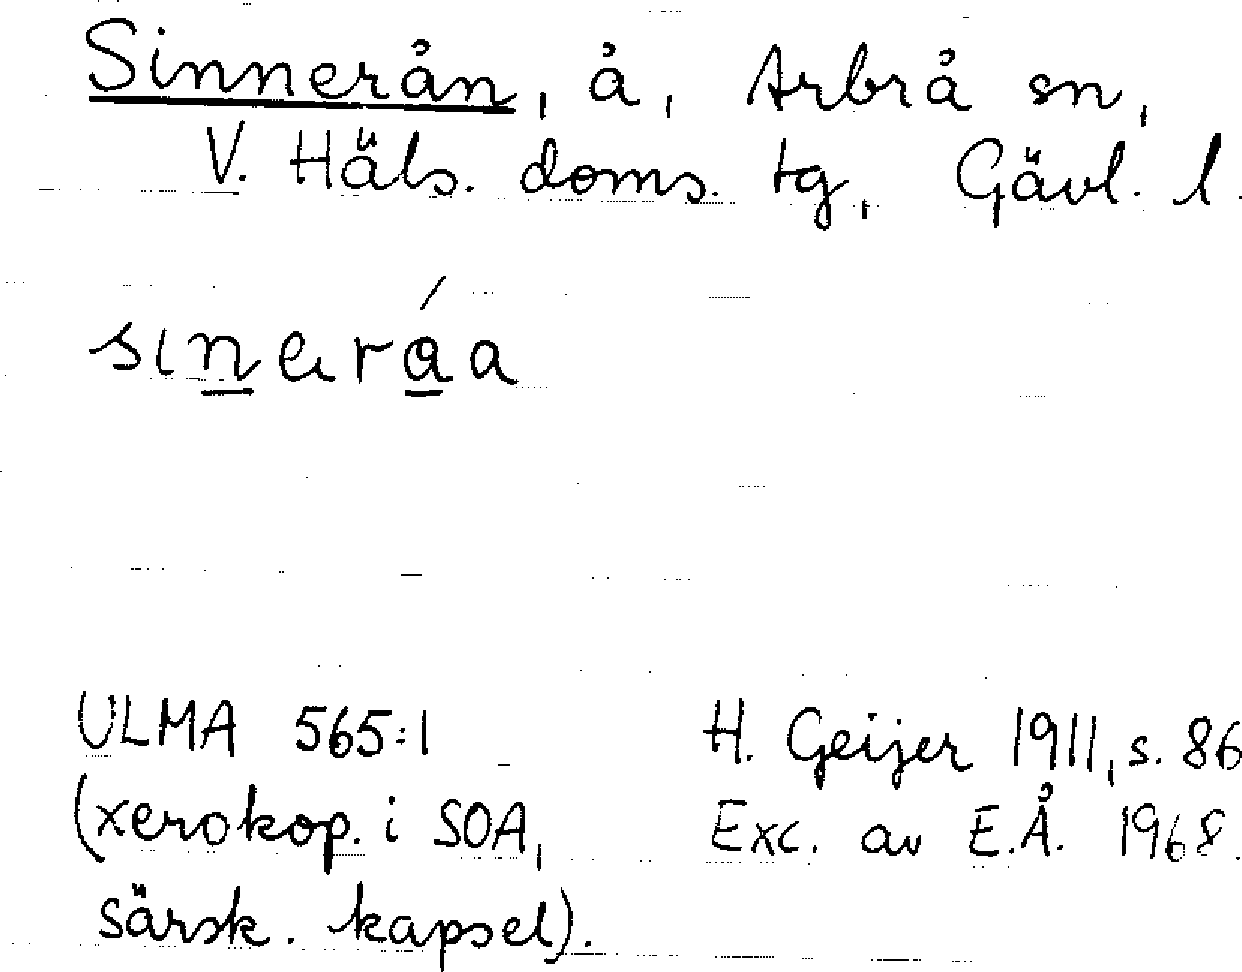 Sinnerån, å, Arbrå sn,
V. Häls. doms. tg, Gävl. l.
ULMA 565:1 H. Geijer 1911, s. 86
(xerokop. i SOA, Exc. av E.Å. 1968.
särsk. kapsel).